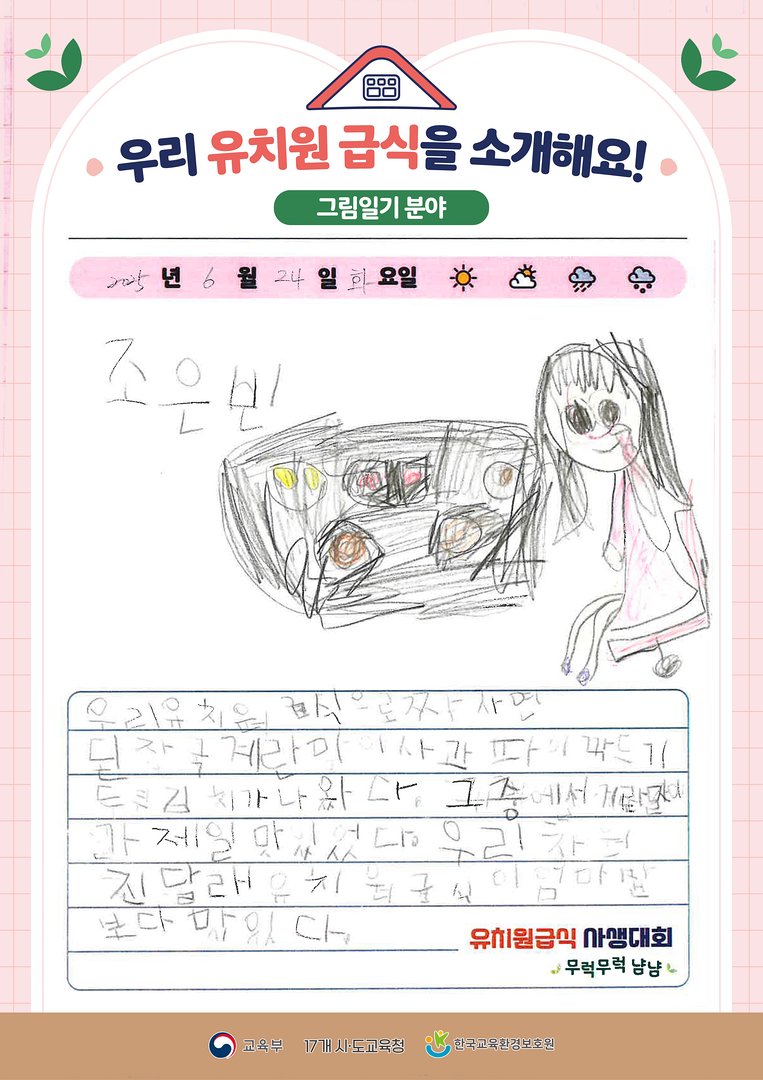 우리 유치원 급식을 소개해요!
그림일기 분야
2025 년 6 월 24 일 화 요일
조은빈
우리유치원 급식으로 짜장면
된장국 계란말이 사과 파인 깍두기
김치가 나왔다. 그 중에서 계란말이
가 제일 맛있었다. 우리
진달래 유치원 급식이 엄마밥
보다 맛있다.
유치원급식 사생대회
무럭무럭 냠냠
교육부 17개 시·도교육청 한국교육환경보호원